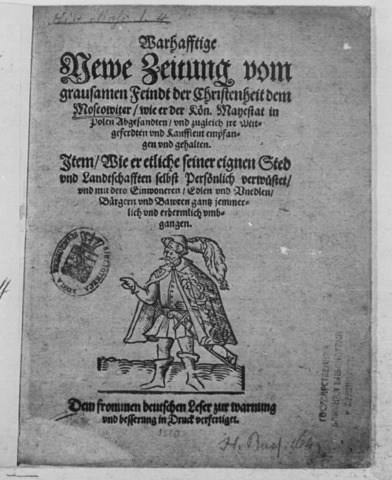 Warhafftige
Newe Zeitung vom
grausamen Feindt der Christenheit dem
Moscowiter / wie er der Kön. Mayestat in
Polen Abgesandten / und zugleich ire Mit-
geferdten und Kauffleut empfan-
gen und gehalten.
Item / Wie er etliche seiner eignen Sted
und Landtschafften selbst Persönlich verwüstet /
und mit dero Einwoneren / Edlen und Vnedlen /
Bürgern und Bawren gantz jemmer-
lich und erbermlich umb-
gangen.
Dem frommen deutschen Leser zur warnung
und besserung in Druck verfertiget.
1570
H. Russ. 164